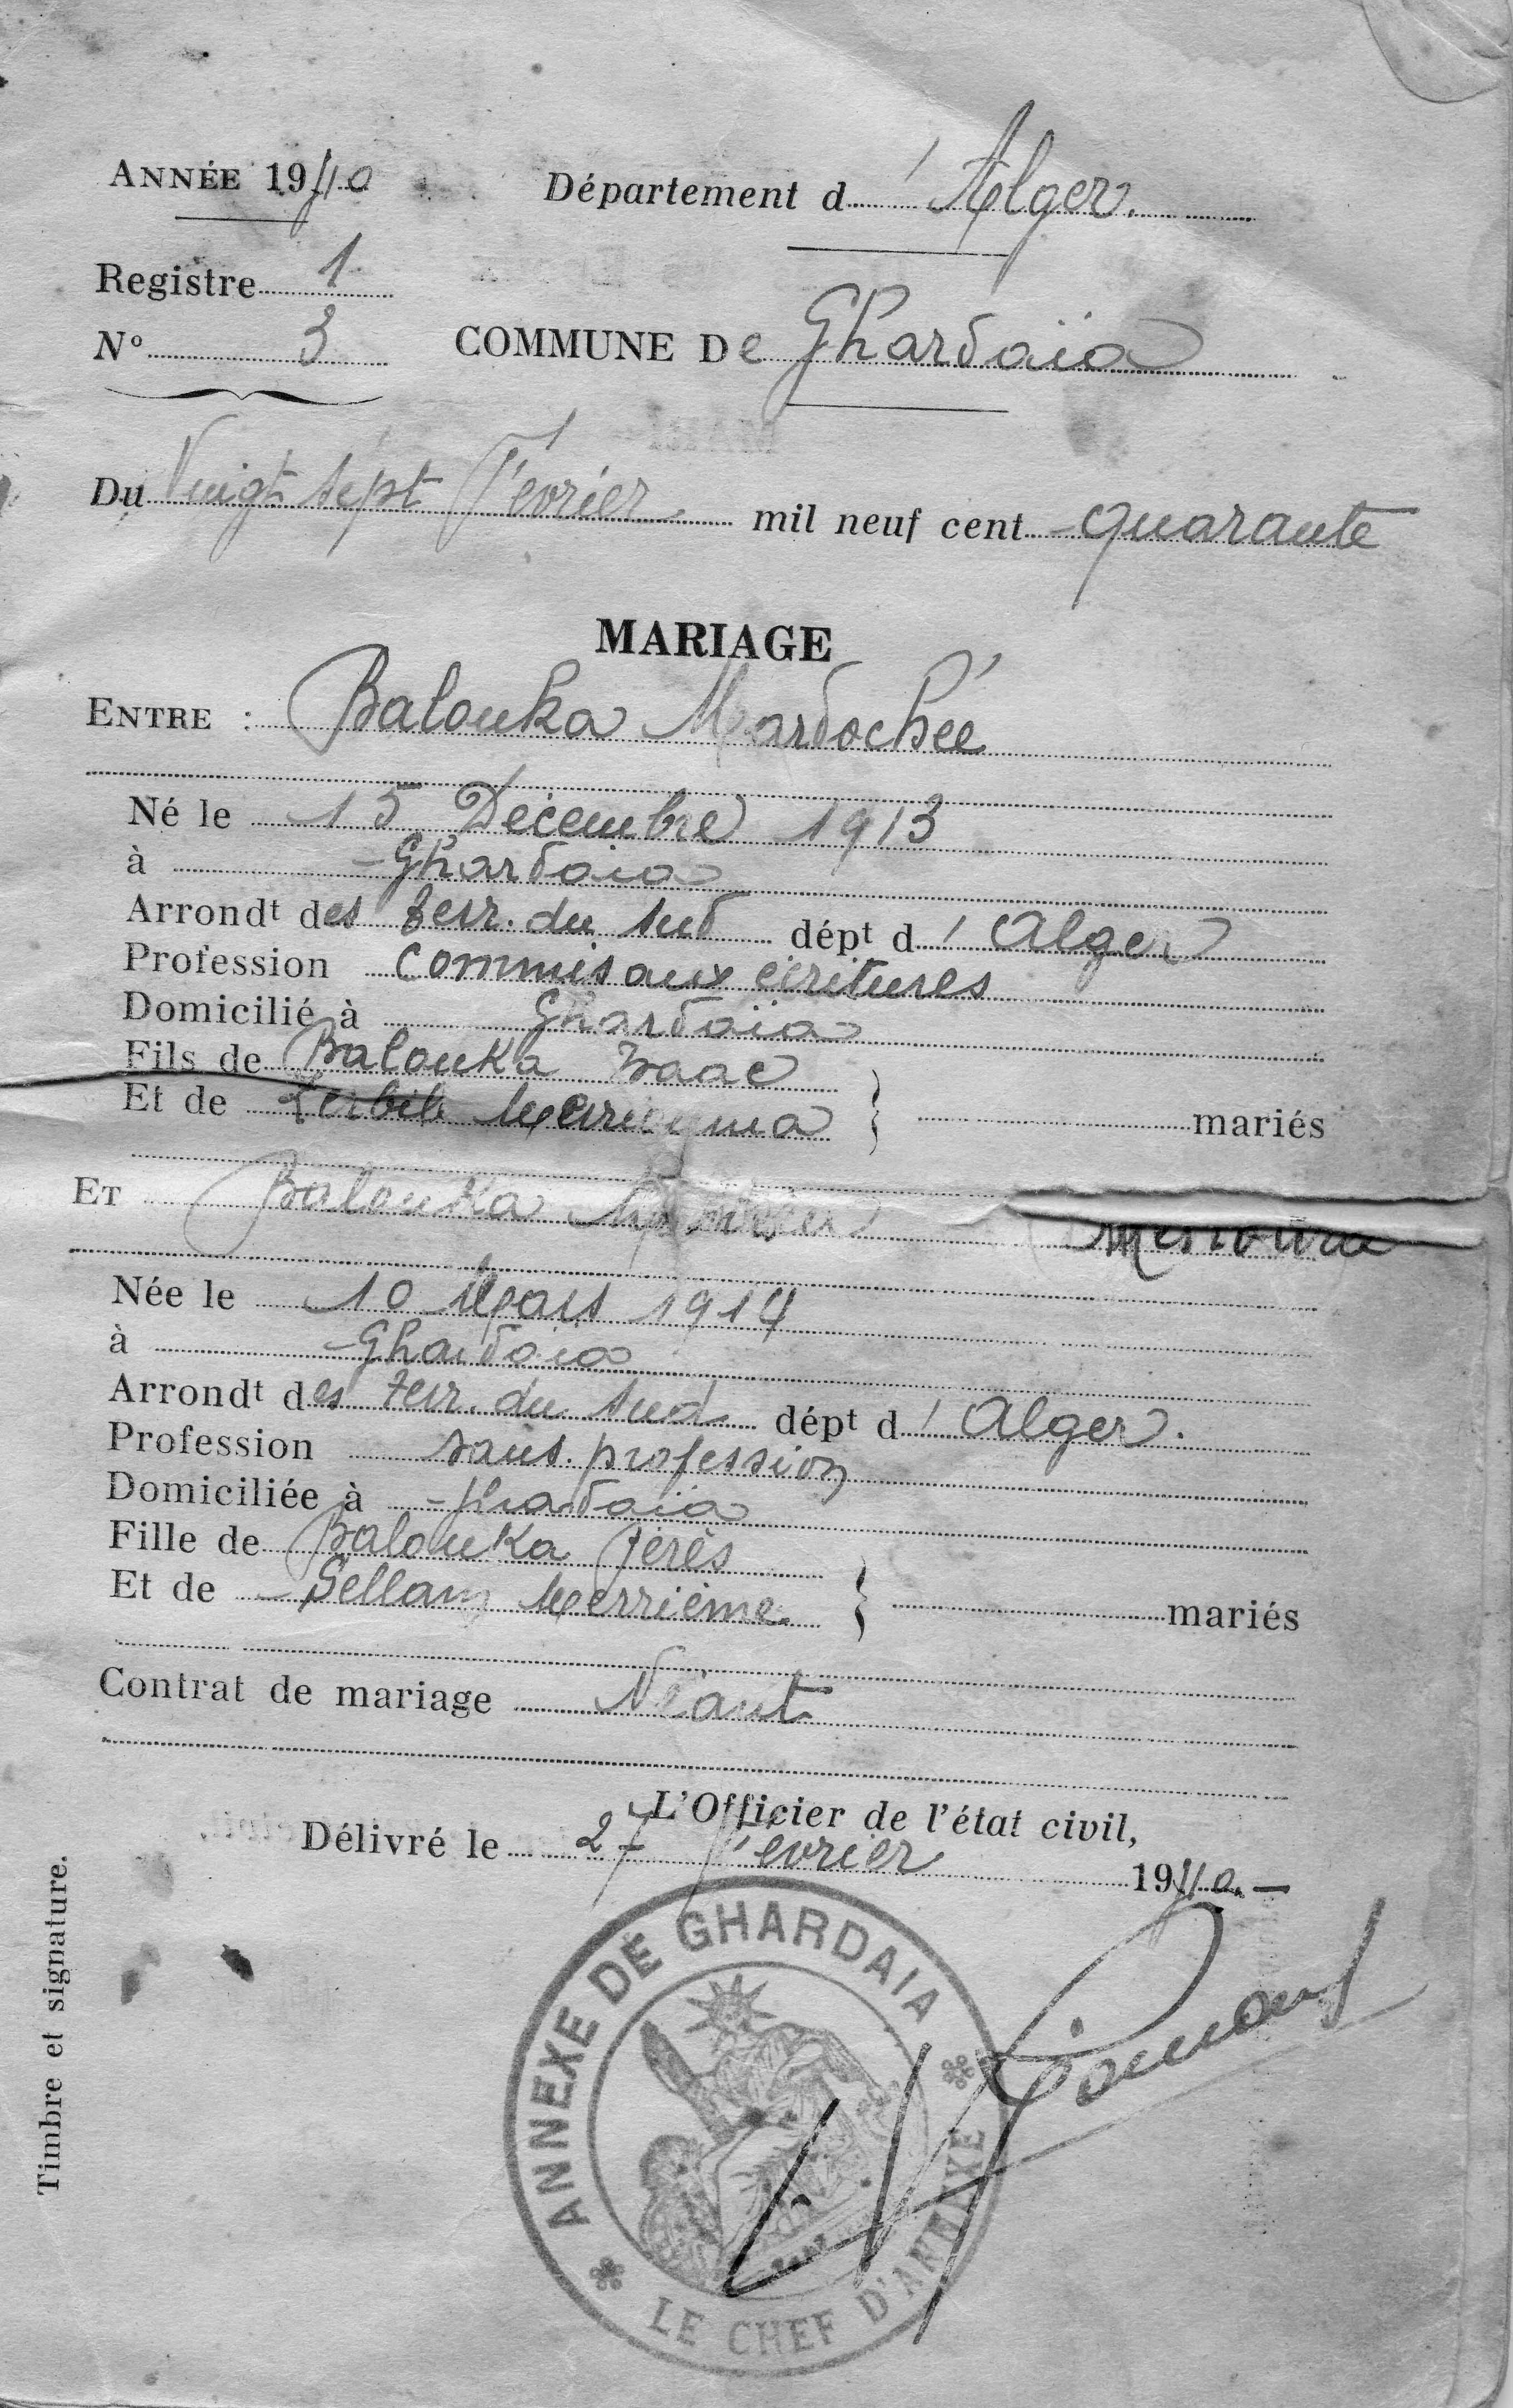 ANNÉE 1940
Département d'Alger.
Registre 1
N° 3
COMMUNE De Ghardaïa
Du Vingt sept Février mil neuf cent quarante
MARIAGE
ENTRE : Balouka Mardochée
Né le 15 Décembre 1913
à Ghardaia
Arrondt des terr. du sud dépt d'Alger
Profession commis aux écritures
Domicilié à Ghardaïa
Fils de Balouka Isaac
Et de mariés
ET Balouka Messaouda
Née le 10 Mars 1914
à Ghardaia
Arrondt des terr. du sud dépt d'Alger.
Profession sans profession
Domiciliée à Ghardaïa
Fille de Balouka Jérès
Et de Sellam Merrième mariés
Contrat de mariage Néant
L'Officier de l'état civil,
Délivré le 27 Février 1940.—
Timbre et signature.
ANNEXE DE GHARDAIA
LE CHEF D'ANNEXE